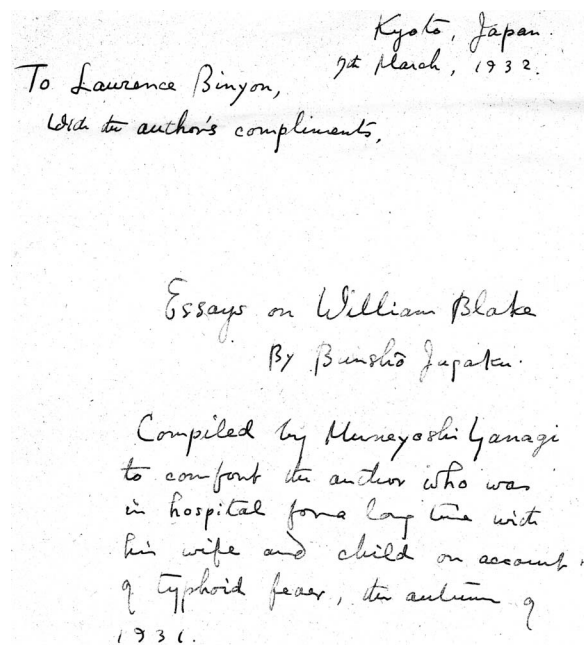 Kyoto, Japan.
7th March, 1932.
To Laurence Binyon,
With the author's compliments,
Essays on William Blake
By Bunshō Jugaku.
Compiled by Muneyoshi Yanagi
to comfort the author who was
in hospital for a long time with
his wife and child on account
of typhoid fever, the autumn of
1931.